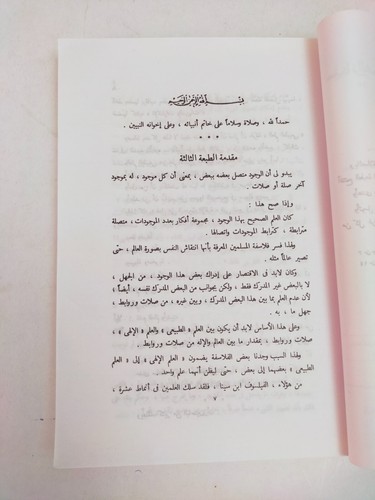 بسم الله الرحمن الرحيم
حمداً لله ، وصلاة وسلاماً على خاتم أنبيائه ، وعلى إخوانه النبيين .
* * *
مقدمة الطبعة الثالثة
يبدو لى أن الوجود متصل بعضه ببعض ، بمعنى أن كل موجود ، له بموجود
آخر صلة أو صلات .
وإذا صح هذا :
كان العلم الصحيح بهذا الوجود ، مجموعة أفكار بعدد الموجودات ، متصلة
مترابطة ، كترابط الموجودات واتصالها .
ولهذا فسر فلاسفة المسلمين المعرفة بأنها انتقاش النفس بصورة العالم ، حتى
تصير عالماً مثله .
وكان لابد فى الاقتصار على إدراك بعض هذا الوجود ، من الجهل ،
لا بالبعض غير المدرك فقط ، ولكن بجوانب من البعض المدرك نفسه ، أيضاً ،
لأن عدم العلم بما بين هذا البعض المدرك ، وبين غيره ، من صلات وروابط ،
جهل ما ، به .
وعلى هذا الأساس لابد أن يكون بين العلم « الطبيعى » والعلم « الإلهى » ،
صلات وروابط ، بمقدار ما بين العالم والإله من صلات وروابط .
ولهذا السبب وجدنا بعض الفلاسفة يضمون « العلم الإلهى » إلى « العلم
الطبيعى » بعضهما إلى بعض ، حتى ليظن أنهما علم واحد .
من هؤلاء ، الفيلسوف ابن سينا ، فلقد سلك العلمين فى أنماط عشرة ،
٧